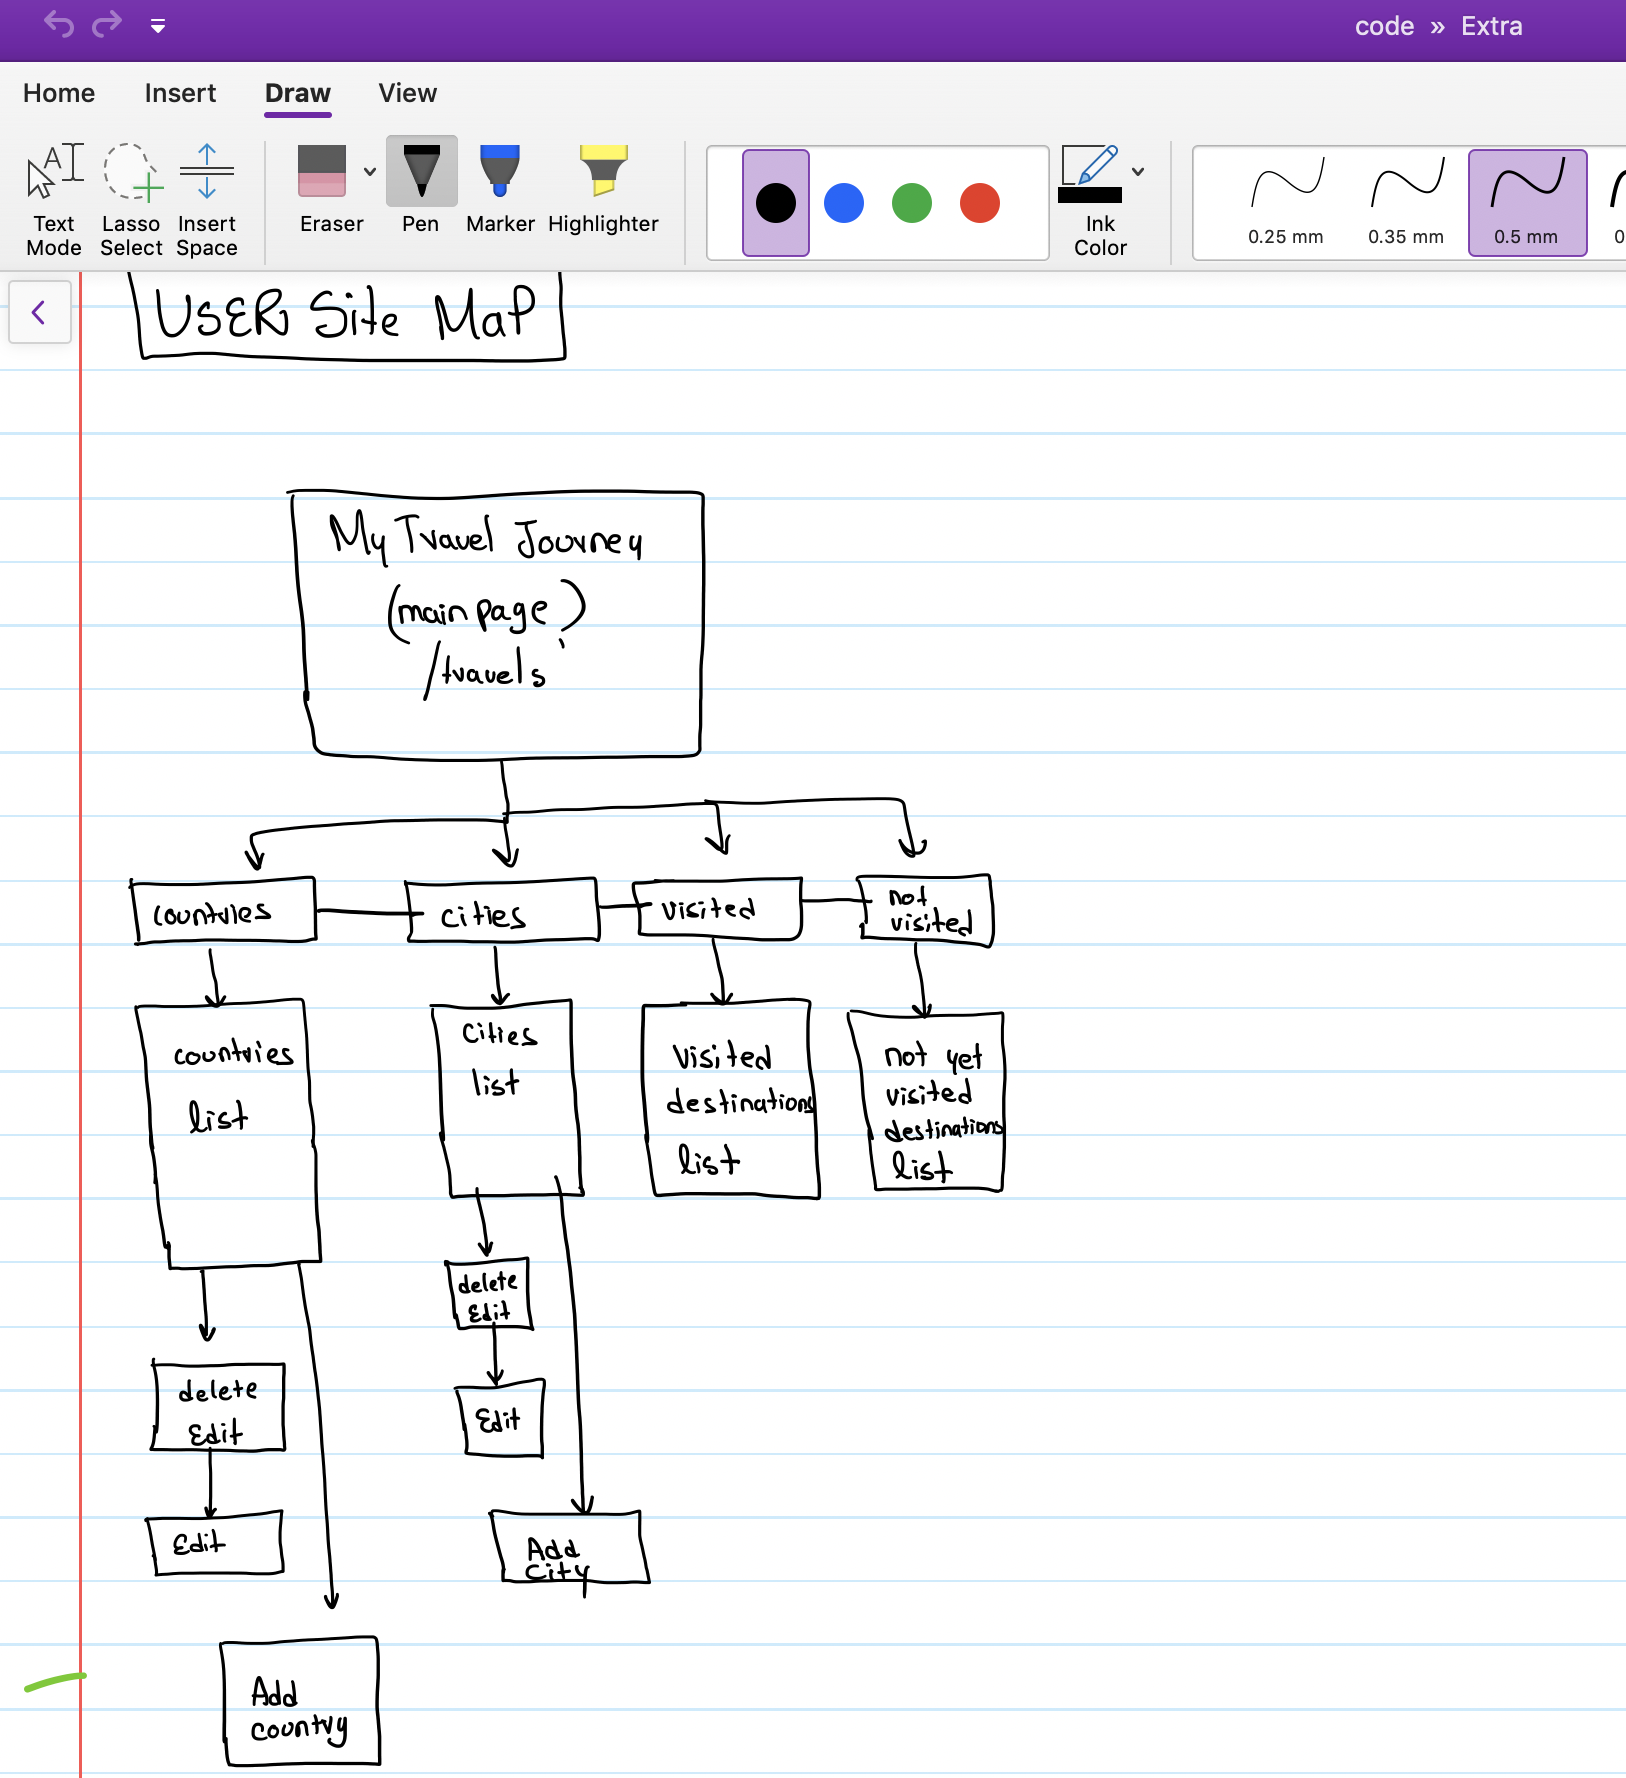 code » Extra
Home Insert Draw View
Text Mode
Lasso Select
Insert Space
Eraser
Pen
Marker
Highlighter
Ink Color
0.25 mm
0.35 mm
0.5 mm
0
USER Site Map
My Travel Journey
(main page)
/travels
countries
cities
visited
not
visited
countries
list
Cities
list
Visited
destinations
list
not yet
visited
destinations
list
delete
Edit
Edit
delete
Edit
Edit
Add
City
Add
country